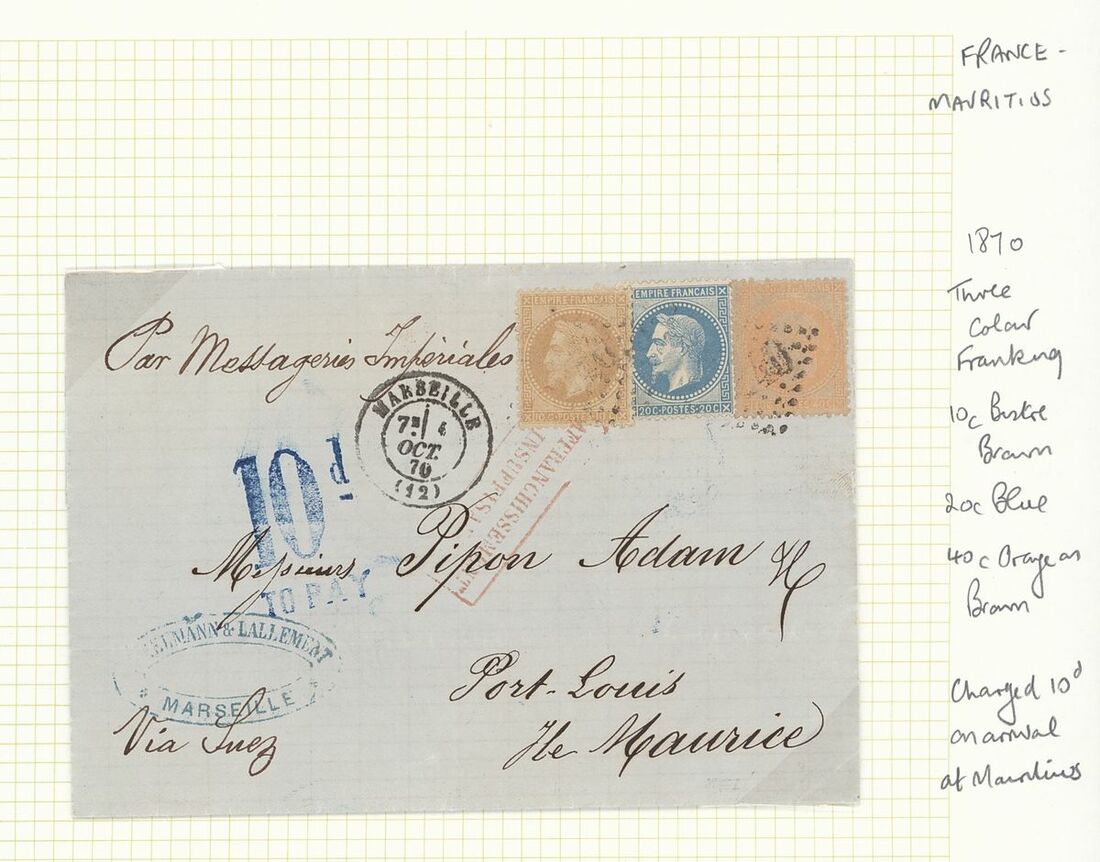 FRANCE -
MAURITIUS
1870
Three
Colour
Franking
10c Bistre
Brown
20c Blue
40c Orange on
Brown
Charged 10d
on arrival
at Mauritius
Par Messageries Impériales
EMPIRE FRANCAIS
EMPIRE FRANCAIS
20C-POSTES-20C
MARSEILLE
7E 4
OCT.
70
(12)
AFFRANCHISSEMENT
10d
TO PAY
Messieurs Pipon Adam &
& LALLEMENT
MARSEILLE
Port-Louis
Ile Maurice
Via Suez